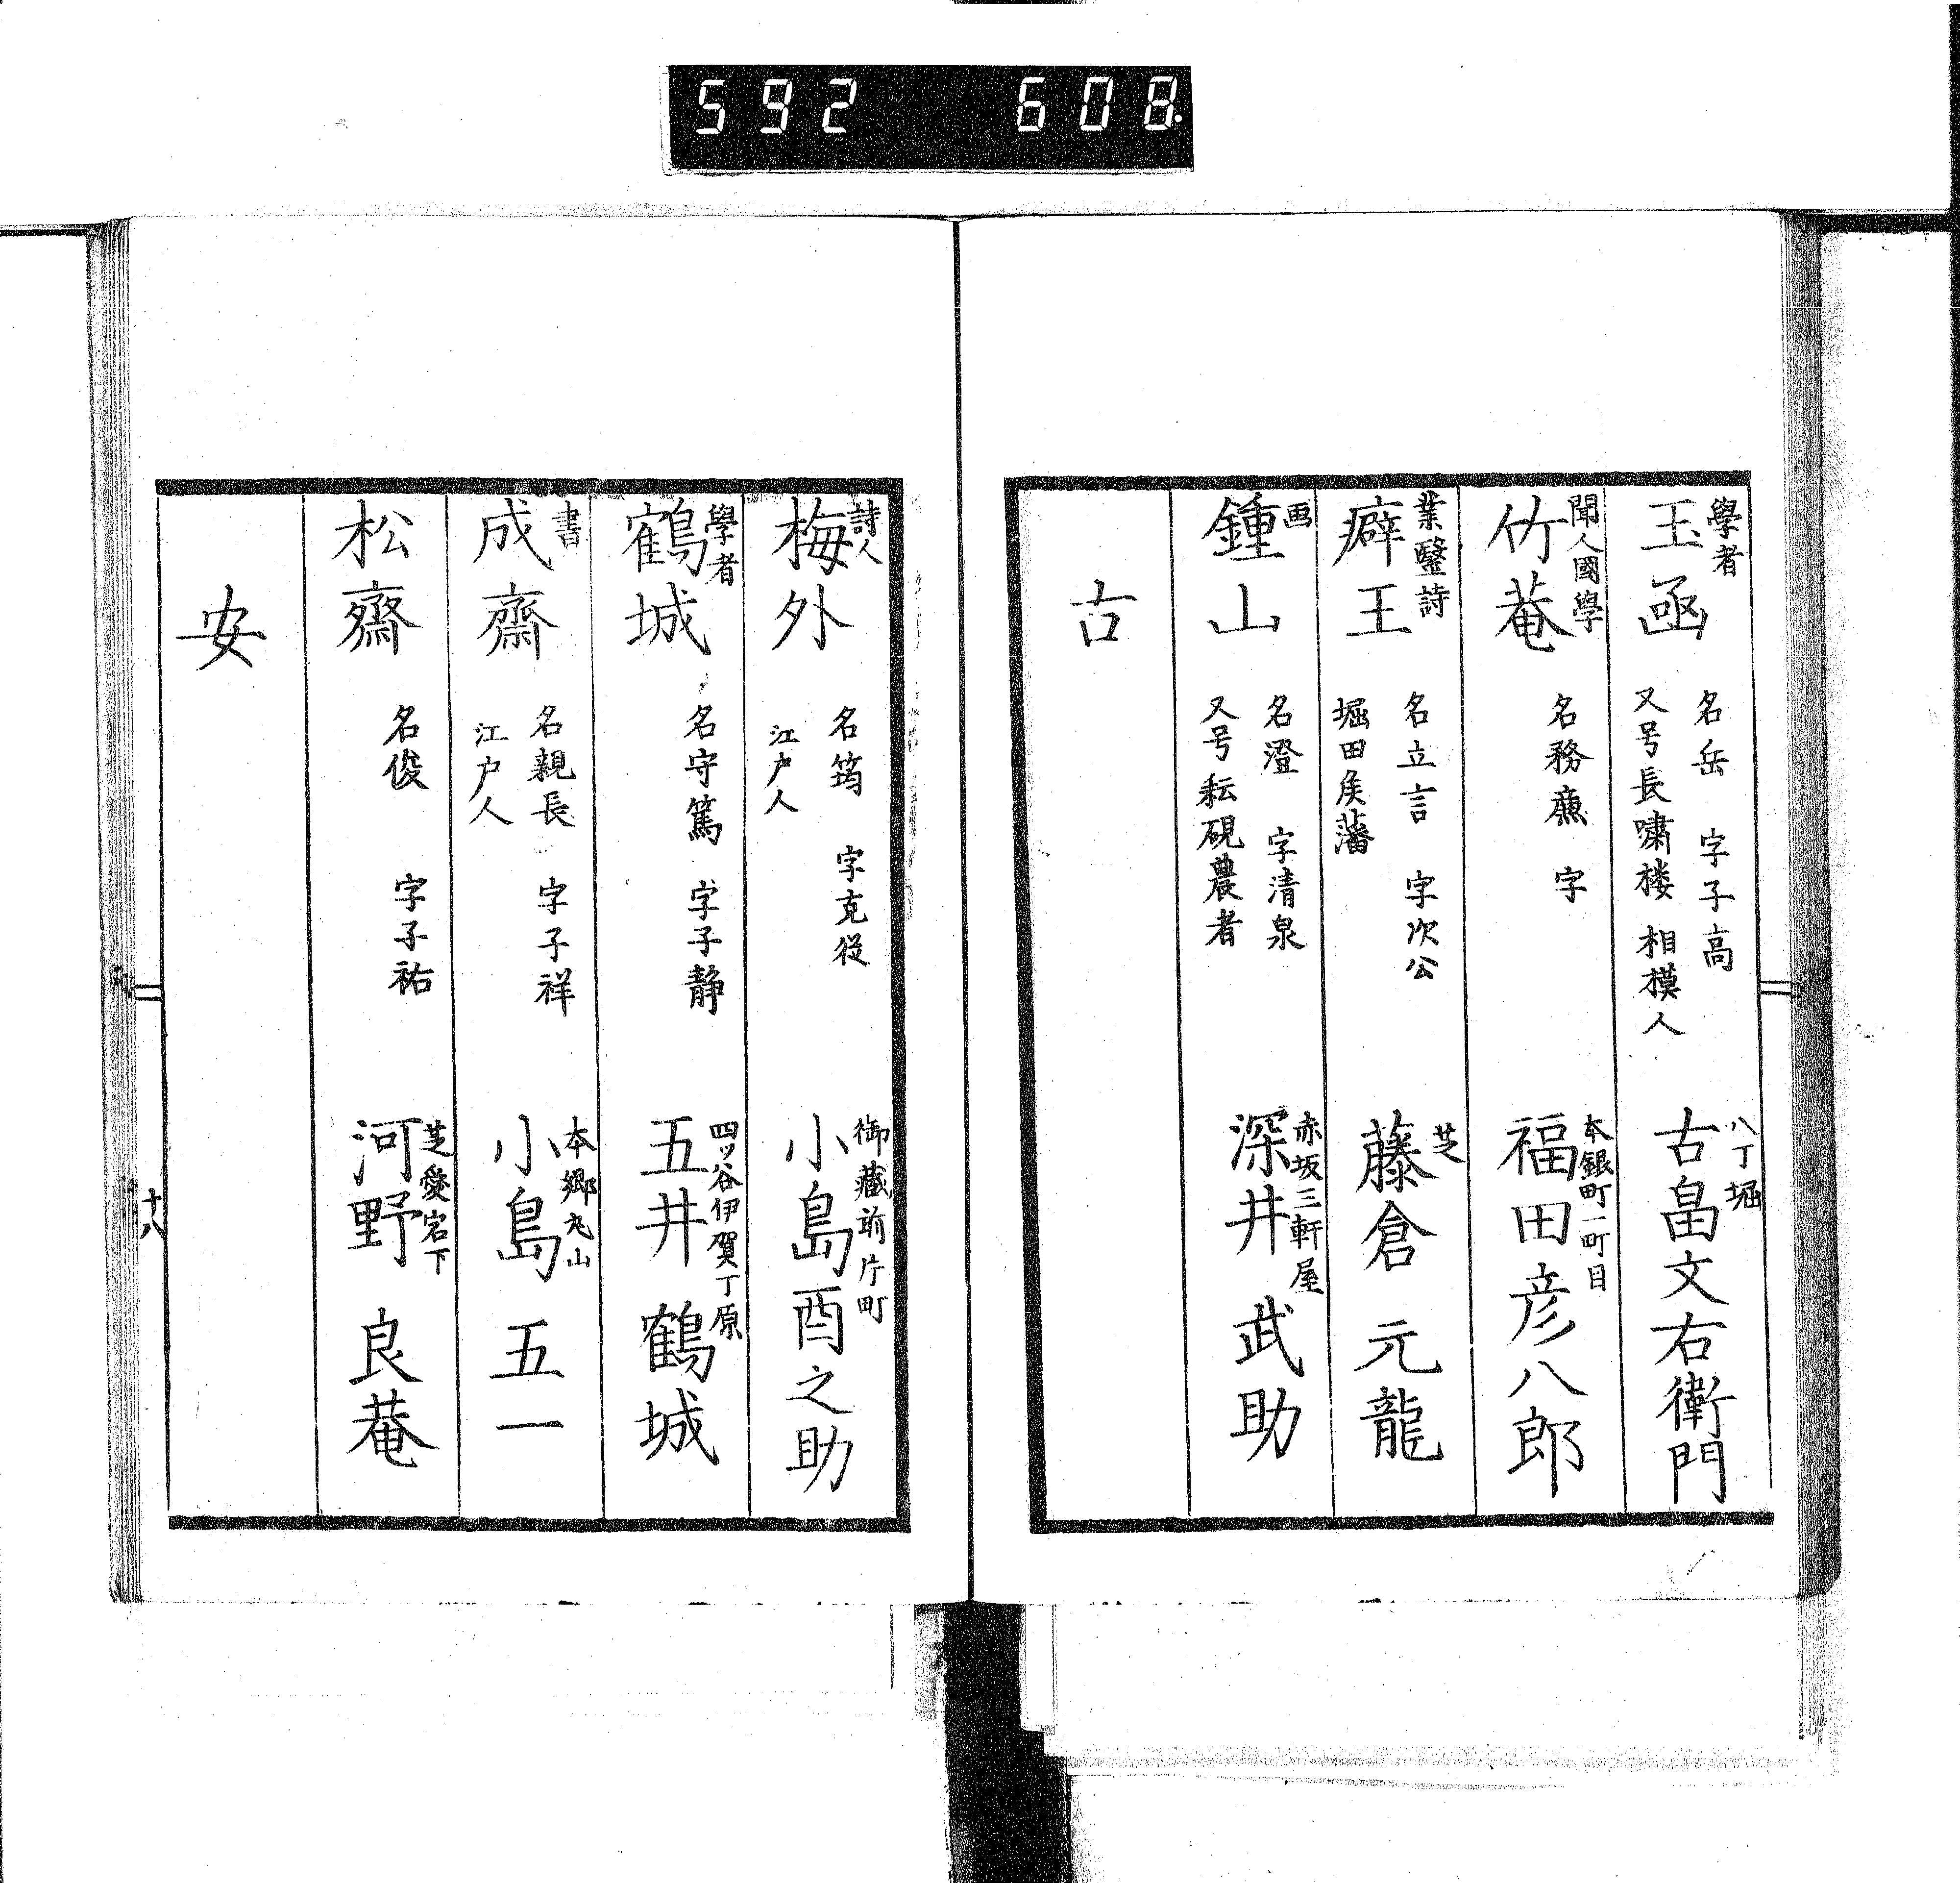 592 608
學者
玉函
名岳 字子高
又号長嘯楼 相模人
八丁堀
古畠文右衛門
聞人國學
竹菴
名務廉 字
本銀町一町目
福田彦八郎
業醫詩
癖王
名立言 字次公
堀田矦藩
芝
藤倉元龍
画
鍾山
名澄 字清泉
又号耘硯農者
赤坂三軒屋
深井武助
古
詩人
梅外
名筠 字克従
江户人
御藏前片町
小島酉之助
學者
鶴城
名守篤 字子静
四ッ谷伊賀丁原
五井鶴城
書
成齋
名親長 字子祥
江户人
本郷丸山
小島五一
松齋
名俊 字子祐
芝愛宕下
河野良菴
安
十八